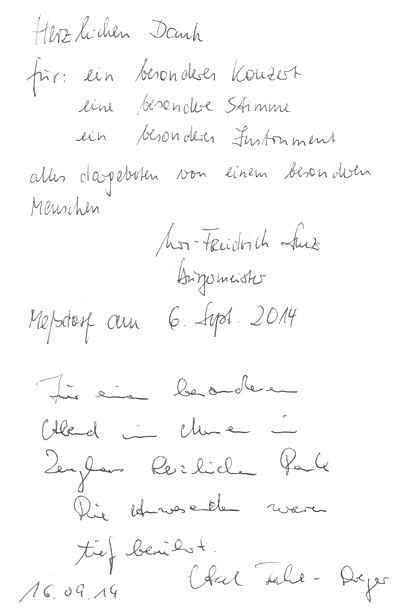 Herzlichen Dank
für: ein besonderes Konzert
eine besondere Stimme
ein besonderes Instrument
alles dargeboten von einem besonderen
Menschen
-Friedrich
Bürgermeister
Meßdorf am 6. Sept. 2014
Für einen besonderen
Abend in in
Zeughaus herzlichen Dank
Die Anwesenden waren
tief berührt.
16.09.14